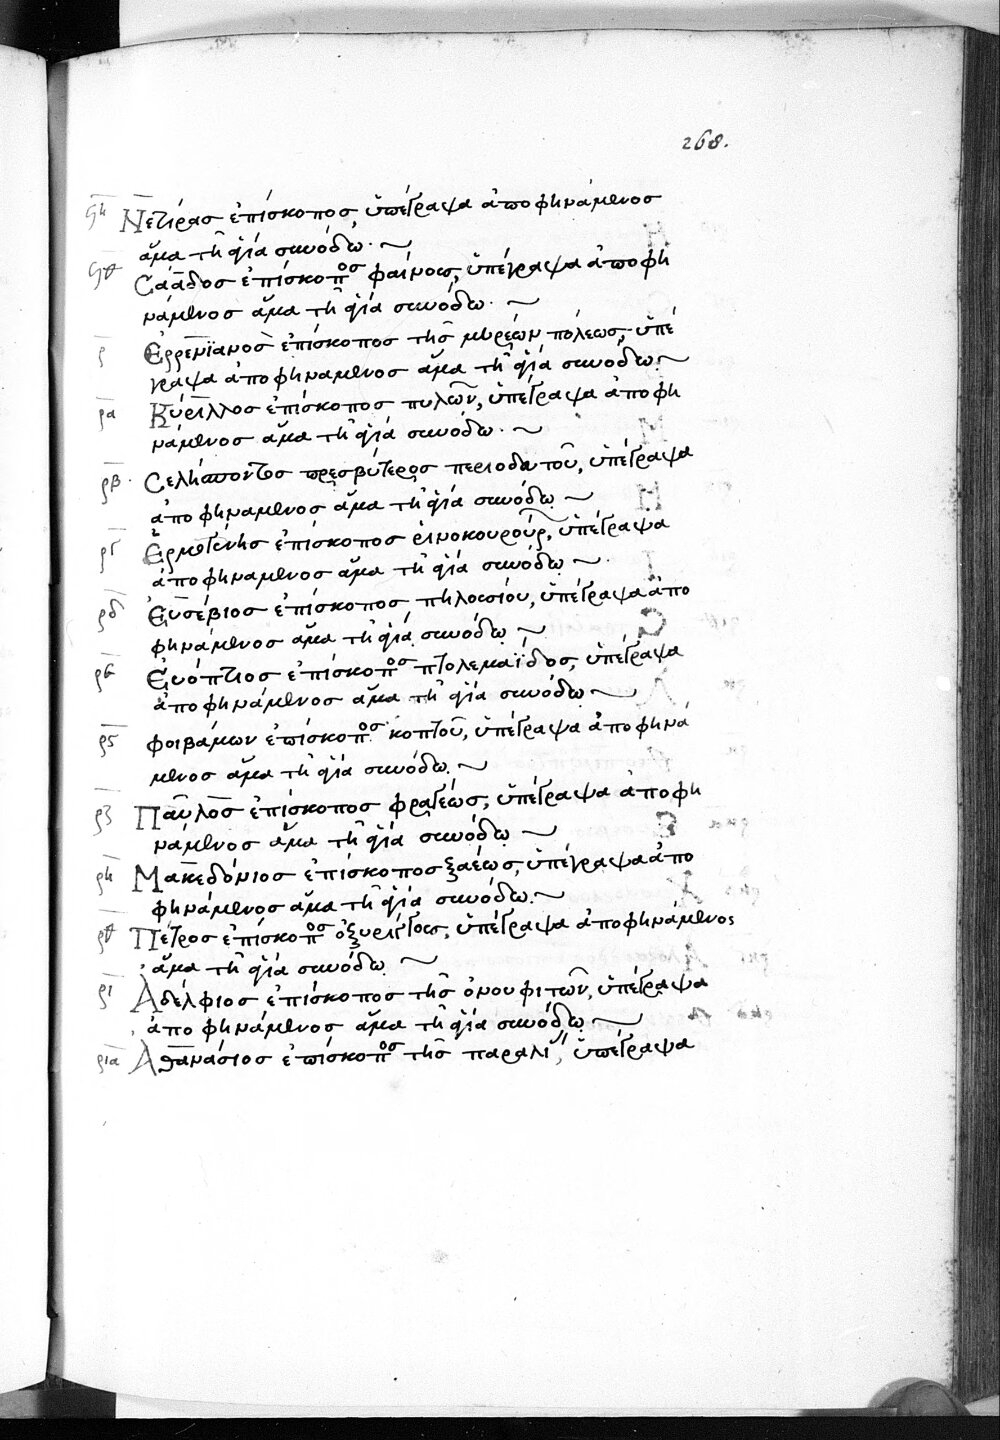 268.
ϟη Νετίρασ ἐπίσκοπος, ὑπέγραψα ἀποφηνάμενος
ἅμα τῆ ἁγία συνόδω.
ϟθ Σάαδος ἐπίσκοπος φαίνους, ὑπέγραψα ἀποφη
νάμενος ἅμα τῆ ἁγία συνόδω.
ρ Ἑρρενϊανοσ ἐπίσκοπος τῆσ μυρέων πόλεως, ὑπέ
γραψα ἀποφηναμενος ἅμα τῆ ἁγία συνόδω.
ρα Κύριλλος ἐπίσκοπος πυλῶν, ὑπέγραψα ἀποφη
νάμενος ἅμα τῆ ἁγία συνόδω.
ρβ πρεσβύτερος περιοδατοῦ, ὑπέγραψα
ἀποφηναμενος ἅμα τῆ ἁγία συνόδω
ργ Ἑρμογένησ ἐπίσκοπος ῥινοκουρούρ, ὑπέγραψα
ἀποφηναμενος ἅμα τῆ ἁγία συνόδω
ρδ Ἐυσέβιος ἐπίσκοπος πηλουσίου, ὑπέγραψα ἀπο
φηνάμενος ἅμα τῆ ἁγία συνόδω.
ρε Ἐυόπτιος ἐπίσκοπος πτολεμαΐδος, ὑπέγραψα
ἀποφηνάμενος ἅμα τῆ ἁγία συνόδω
ρϛ φοιβάμων ἐπίσκοπος κοπτοῦ, ὑπέγραψα ἀποφηνά
μενος ἅμα τῆ ἁγία συνόδω.
ρζ Παῦλος ἐπίσκοπος φραγέως, ὑπέγραψα ἀποφη
νάμενος ἅμα τῆ ἁγία συνόδω
ρη Μακεδόνιος ἐπίσκοπος ξαέως, ὑπέγραψα ἀπο
φηνάμενος ἅμα τῆ ἁγία συνόδω.
ρθ Πέτρος ἐπίσκοπος ὀξυρίγγους, ὑπέγραψα ἀποφηνάμενος
ἅμα τῆ ἁγία συνόδω
ρι Ἀδέλφιος ἐπίσκοπος τῆσ ὀνουφιτῶν, ὑπέγραψα
ἀποφηνάμενος ἅμα τῆ ἁγία συνόδω
ρια Ἀθανάσιος ἐπίσκοπος τῆσ παραλί, ὑπέγραψα